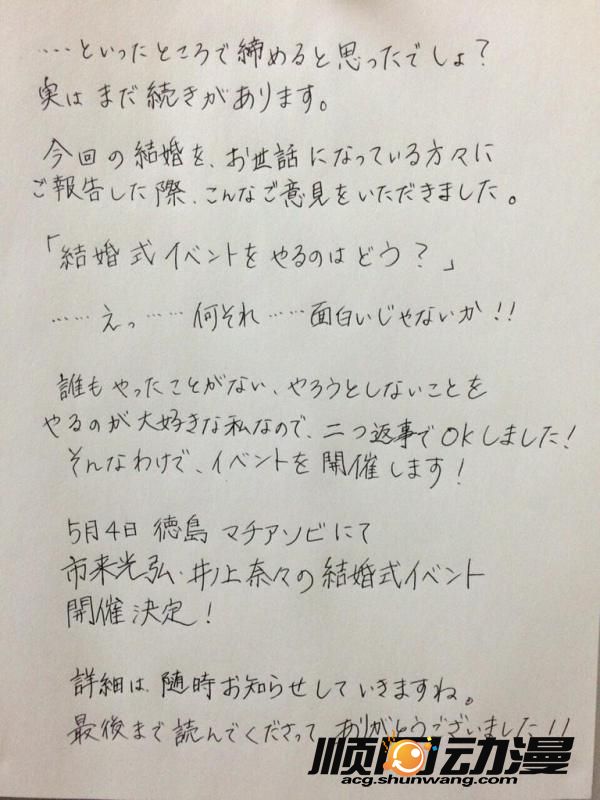 ‥‥といったところで締めると思ったでしょ？
実はまだ続きがあります。
今回の結婚を、お世話になっている方々に
ご報告した際、こんなご意見をいただきました。
「結婚式イベントをやるのはどう？」
……えっ……何それ……面白いじゃないか!!
誰もやったことがない、やろうとしないことを
やるのが大好きな私なので、二つ返事でOKしました!
そんなわけで、イベントを開催します!
5月4日 徳島 マチアソビにて
市来光弘・井ノ上奈々の結婚式イベント
開催決定!
詳細は、随時お知らせしていきますね。
最後まで読んでくださって、ありがとうございました!!
顺网动漫
acg.shunwang.com